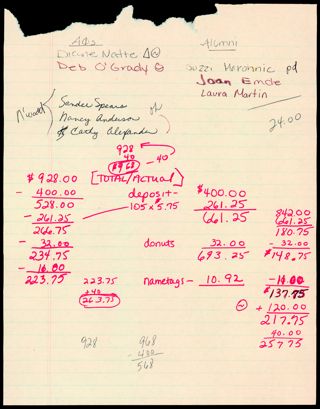 AΦs
Alumni
Deb O'Grady
pd
Joan Emde
Laura Martin
Sender Spears
Nancy Anderson
of
Cathy Alexander
24.00
928
40
$968
- 40
$928.00
[TOTAL/ACTUAL]
- 400.00
deposit -
$400.00
528.00
105 x 5.75
261.25
842.00
- 261.25
661.25
661.25
266.75
180.75
- 32.00
donuts
32.00
- 32.00
234.75
693.25
$148.75
- 11.00
223.75
223.75
nametags -
10.92
- 11.00
+40
$137.75
263.75
+ 120.00
217.75
928
968
40.00
- 400
257.75
568